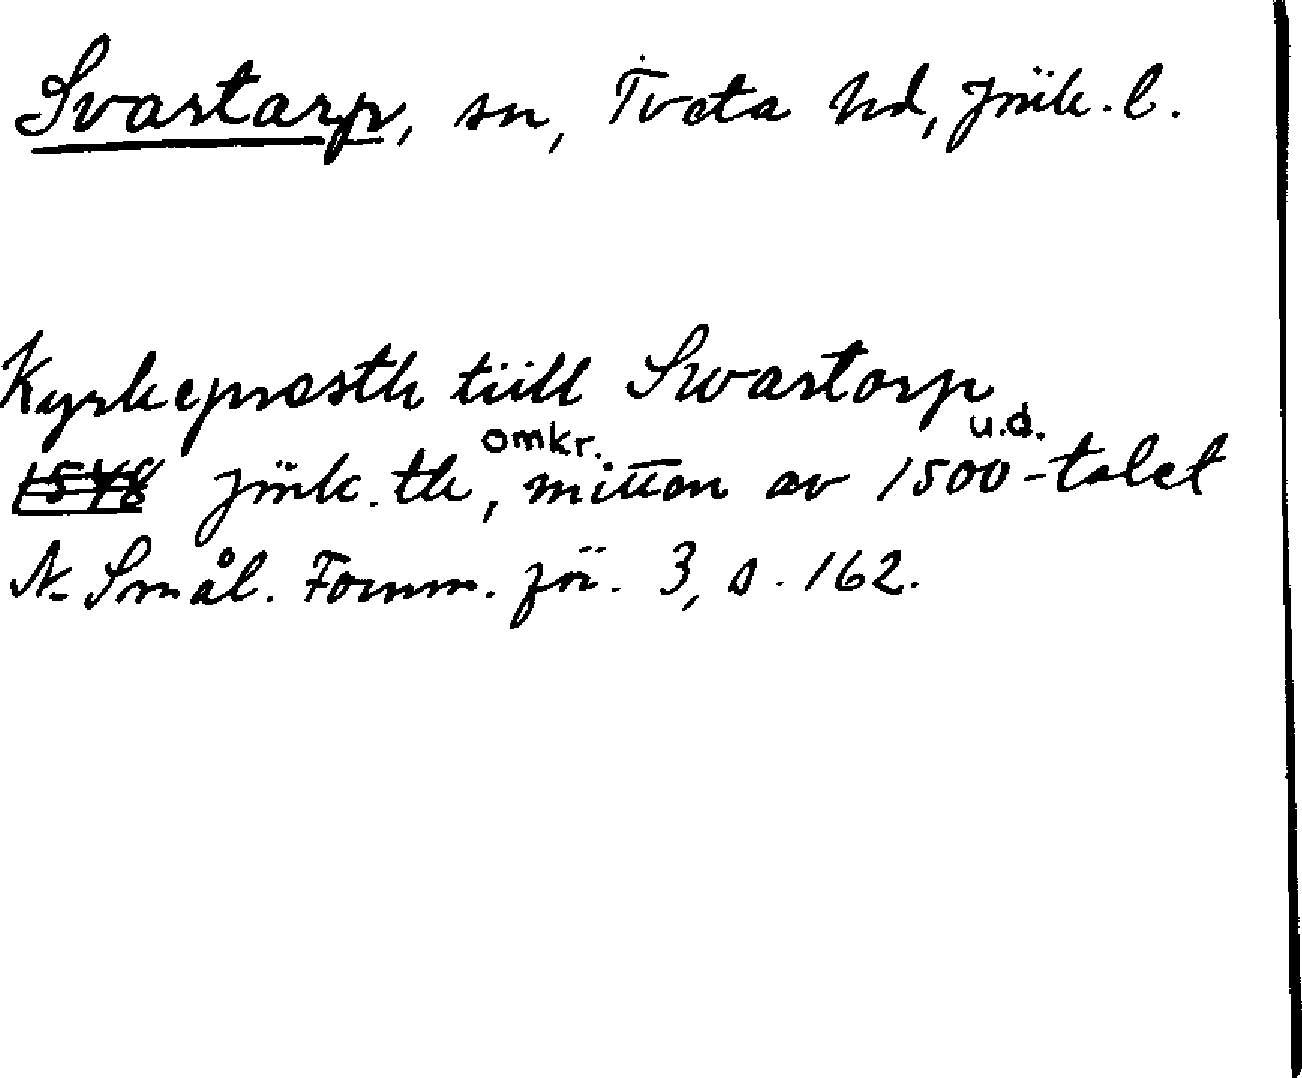 Svartarp, sn, Tveta hd, Jönk. l.
Kyrkepræsth tiill Swartorp
1548 Jönk. tk, omkr. mitten av 1500-talet u.d.
N. Smål. Fornm. för. 3, s. 162.